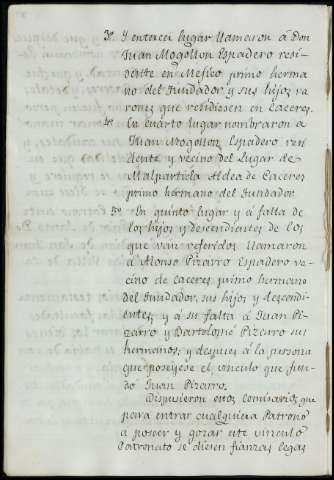 3º Y entercer lugar llamaron à Don
Juan Mogollon Espadero resi-
dente en Mexico primo herma
no del Fundador y sus hijos va
rones que residiesen en Caceres.
4º En cuarto lugar nombraron a
Juan Mogollon Espadero resi
dente y vecino del Lugar de
Malpartida Aldea de Caceres
primo hermano del Fundador.
5º En quinto lugar y á falta de
los hijos y descendientes de los
que van referidos llamaron
à Alonso Pizarro Espadero ve-
cino de Caceres, primo hermano
del Fundador, sus hijos y descendi-
entes, y á su falta á Juan Pi-
zarro y Bartolomé Pizarro sus
hermanos; y despues á la persona
que poseyese el vinculo que fun-
dó Juan Pizarro.
Dispusieron otros Comisarios, que
para entrar cualquiera Patrono
a poseer y gozar este vinculo
Patronato se diesen fianzas legas